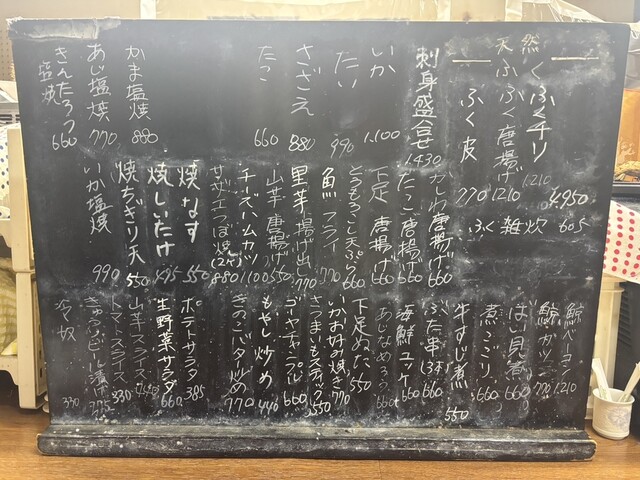 天然
ふくチリ 4,950
ふぐ唐揚げ 1210
ふく皮 770
ふく雑炊 605
刺身盛合せ 1430
いか 1,100
たい 990
さざえ 880
たこ 660
かま塩焼 880
あじ塩焼 770
きんたろう塩焼 660
かしわ唐揚げ 660
たこ唐揚げ 660
下足唐揚げ 660
とうもろこし天ぷら 660
魚フライ 770
里芋揚げ出し 770
山芋唐揚げ 550
チーズハムカツ 1100
サザエつぼ焼(2ケ) 880
焼なす 550
焼しいたけ 495
焼ちぎり天 550
いか塩焼 990
鯨ベーコン 1,210
鯨カツ 770
ばい貝煮 660
煮こごり 660
牛すじ煮 550
ぶた串3本 660
海鮮ユッケ 660
あじなめろう 660
下足ぬた 550
いかお好み焼き 770
さつまいもスティック 550
ゴーヤチャンプル 660
もやし炒め 440
きのこバター炒め 770
ポテトサラダ 385
生野菜サラダ 660
山芋スライス 440
トマトスライス 330
きゅうりビール漬け 275
冷奴 330